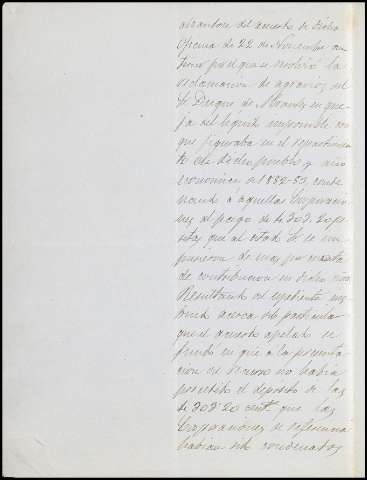 alzándose del acuerdo de dicha
Oficina de 22 de Noviembre an-
terior por que se resolvió la
reclamacion de agravios del
Sr. Duque de Abrantes en que-
ja del líquido imponible con
que figuraba en el repartimien-
to de dicho pueblo y año
economico de 1882-83, conde-
nando á aquellas Corporacio-
nes al pago de 303.20 pe-
setas que al citado Sr. se im-
pusieron de mas por cuota
de contribucion en dicho año
Resultando del espediente ins-
truido acerca del particular
que el acuerdo apelado se
fundó en que a la presenta-
cion del recurso no habia
precedido el depósito de las
303.20 cents. que las
Corporaciones de referencia
habian sido condenadas